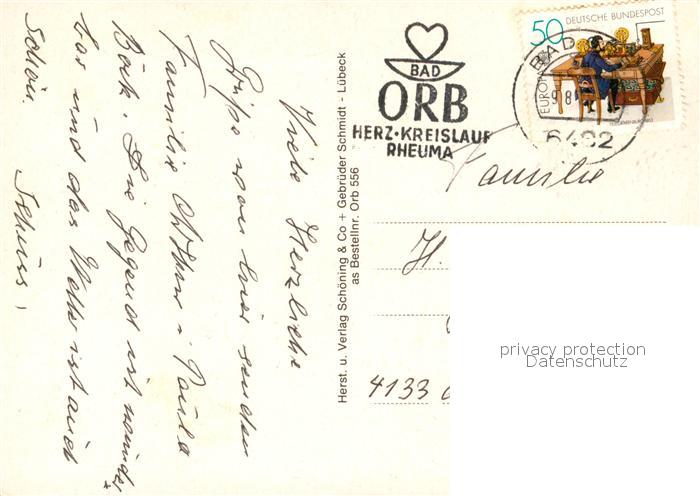 Viele Herzliche
Grüße von hier senden
Familie i Paula
Bock. Die Gegend ist wunder
bar und das Wetter ist auch
schön. Tschüss!
Herst. u. Verlag Schöning & Co + Gebrüder Schmidt - Lübeck
as Bestellnr. Orb 556
BAD
ORB
HERZ-KREISLAUF
RHEUMA
50 DEUTSCHE BUNDESPOST
EUROPA
BAD
6482
Familie
H.
4133
privacy protection
Datenschutz